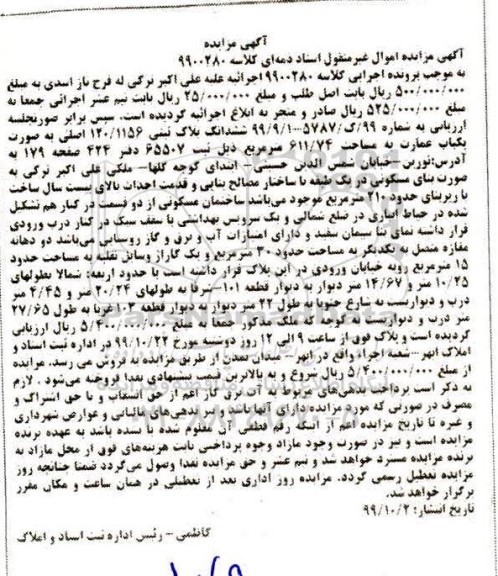 آگهی مزایده
آگهی مزایده اموال غیرمنقول اسناد ذمه‌ای کلاسه ۹۹۰۰۲۸۰
به موجب پرونده اجرایی کلاسه ۹۹۰۰۲۸۰ اجرائیه علیه علی اکبر ترکی له فرج ناز اسدی به مبلغ
۵۰۰/۰۰۰/۰۰۰ ریال بابت اصل طلب و مبلغ ۲۵/۰۰۰/۰۰۰ ریال بابت نیم عشر اجرائی جمعا به
مبلغ ۵۲۵/۰۰۰/۰۰۰ ریال صادر و منجر به ابلاغ اجرائیه گردیده است. سپس برابر صورتجلسه
ارزیابی به شماره ۹۹/ک/۵۷۸۷-۹۹/۹/۱۰ ششدانگ پلاک ثبتی ۱۲۰/۱۱۵۶ اصلی به صورت
یکباب عمارت به مساحت ۶۱۱/۷۴ مترمربع ذیل ثبت ۶۵۵۰۷ دفتر ۴۲۴ صفحه ۱۷۹ به
آدرس: -خیابان شمس الدین حسینی- ابتدای کوچه گلها- ملکی علی اکبر ترکی به
صورت بنای مسکونی در یک طبقه با ساختار مصالح بنایی و قدمت احداث بالای بیست سال ساخت
با زیربنای حدود ۲۱۰ مترمربع موجود می‌باشد ساختمان مسکونی از دو قسمت در کنار هم تشکیل
شده در حیاط انباری در ضلع شمالی و یک سرویس بهداشتی با سقف سبک در کنار درب ورودی
قرار داشته نمای بنا سیمان سفید و دارای امتیازات آب و برق و گاز روستایی می‌باشد دو دهانه
مغازه متصل به یکدیگر به مساحت حدود ۳۰ مترمربع و یک گاراژ وسایل نقلیه به مساحت حدود
۱۵ مترمربع روبه خیابان ورودی در این پلاک قرار داشته است با حدود اربعه: شمالا بطولهای
۱۰/۲۵ متر و ۱۴/۶۷ متر دیوار به دیوار قطعه ۱۰۱ شرقا به طولهای ۲۰/۲۴ متر و ۴/۴۵ متر
درب و دیواریست به شارع جنوبا به طول ۲۲ متر دیوار به دیوار قطعه ۱۰۳ غربا به طول ۲۷/۶۵
متر درب و دیواریست به کوچه که ملک مذکور جمعا به مبلغ ۵/۴۰۰/۰۰۰/۰۰۰ ریال ارزیابی
گردیده است و پلاک فوق از ساعت ۹ الی ۱۲ روز دوشنبه مورخ ۹۹/۱۰/۲۲ در اداره ثبت اسناد و
املاک ابهر -شعبه اجراء واقع در ابهر- میدان تمدن از طریق مزایده به فروش می رسد. مزایده
از مبلغ ۵/۴۰۰/۰۰۰/۰۰۰ ریال شروع و به بالاترین قیمت پیشنهادی نقدا فروخته می‌شود . لازم
به ذکر است پرداخت بدهی‌های مربوط به آب، برق گاز اعم از حق انشعاب و یا حق اشتراک و
مصرف در صورتی که مورد مزایده دارای آنها باشد و نیز بدهی‌های مالیاتی و عوارض شهرداری
و غیره تا تاریخ مزایده اعم از آنکه رقم قطعی آن معلوم شده یا نشده باشد به عهده برنده
مزایده است و نیز در صورت وجود مازاد وجوه پرداختی بابت هزینه‌های فوق از محل مازاد به
برنده مزایده مسترد خواهد شد و نیم عشر و حق مزایده نقدا وصول می‌گردد ضمنا چنانچه روز
مزایده تعطیل رسمی گردد، مزایده روز اداری بعد از تعطیلی در همان ساعت و مکان مقرر
برگزار خواهد شد.
تاریخ انتشار: ۹۹/۱۰/۲
کاظمی – رئیس اداره ثبت اسناد و املاک